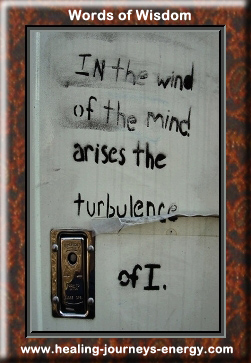 Words of Wisdom
IN the wind
of the mind
arises the
turbulence
of I.
www.healing-journeys-energy.com